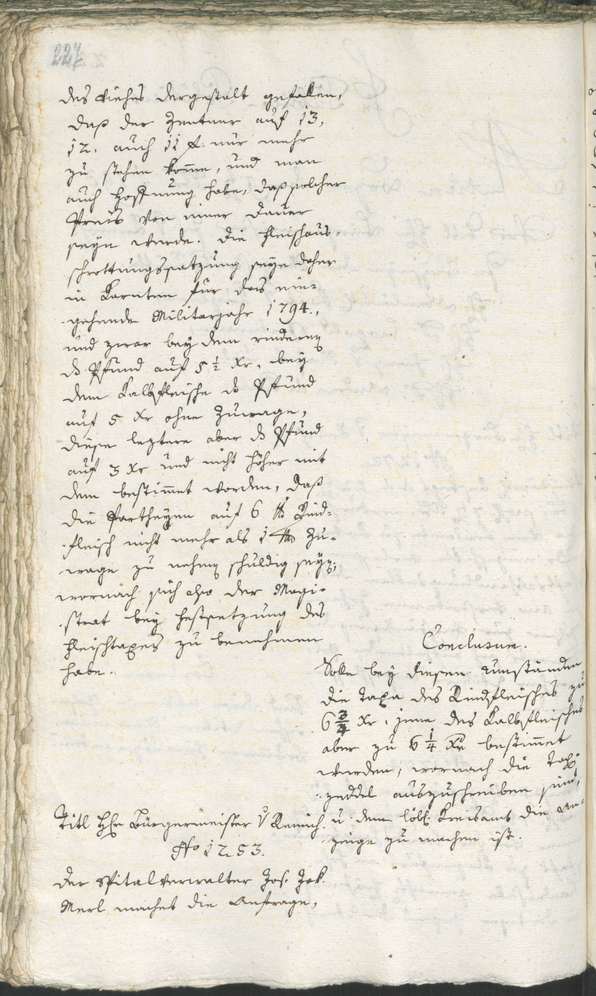 227
des Viehes dergestalt gefallen,
daß der Zentner auf 13,
12, auch 11 f. nur mehr
zu stehen komme, und man
auch Hoffnung habe, daß solcher
Preis von einer Dauer
seyn werde. Die Fleischaus-
schrottungssatzung seye daher
in Kärnten für das ein-
gehende Militarjahr 1794.,
und zwar bey dem rindernen
das Pfund auf 5 1/2 Xr, bey
dem Kalbfleische das Pfund
auf 5 Xr ohne Zuwage,
diese leztere aber das Pfund
auf 3 Xr und nicht höher mit
dem bestimmt worden, daß
die Partheyen auf 6 ℔ Rind-
fleisch nicht mehr als 1 ℔ Zu-
wage zu nehmen schuldig seyn,
wornach sich also der Magi-
strat bey Festsetzung des
Fleischtaxes zu benehmen
habe.
Conclusum.
Solle bey diesen Umständen
die Taxa des Rindfleisches zu
6 3/4 Xr, jene des Kalbfleisches
aber zu 6 1/4 Xr bestimmet
werden, wornach die Tax-
zeddel auszuschreiben sind,
u. dem löbl. Kreisamt die An-
zeige zu machen ist.
Titl Hr Bürgermeister v
No 1253.
Der Spitalverwalter Jos. Jak.
Merl machet die Anfrage,